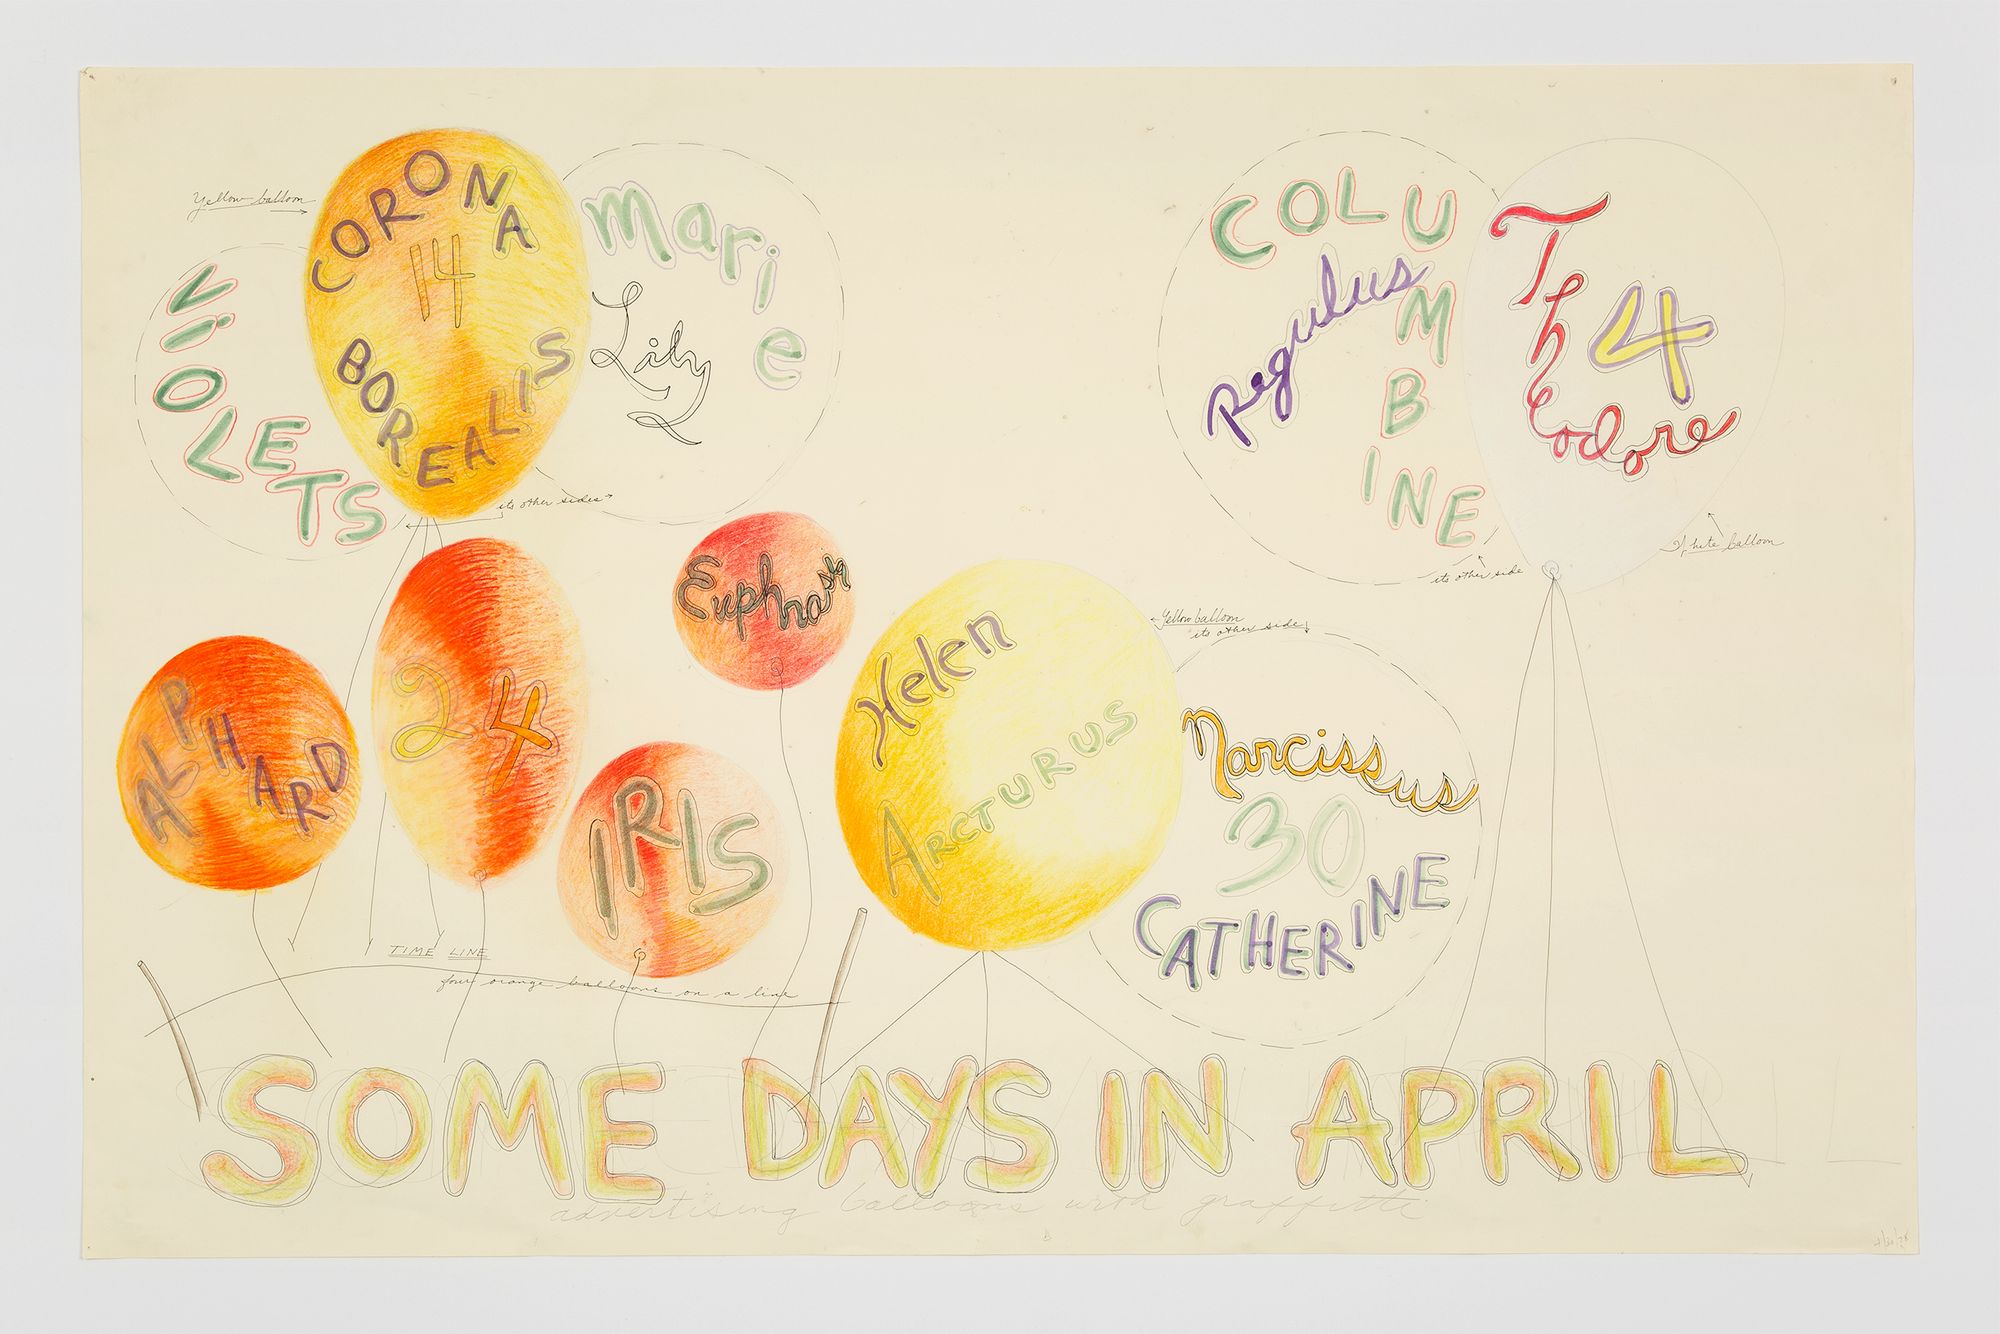 Yellow balloon
CORONA
14
BOREALIS
Marie
Lily
VIOLETS
its other sides
COLUMBINE
Regulus
Theodore
4
White balloon
its other side
ALPHARD
24
Euphrasia
IRIS
Helen
ARCTURUS
Yellow balloon
its other side
Narcissus
30
CATHERINE
TIME LINE
four orange balloons on a line
SOME DAYS IN APRIL
advertising balloons with graffitti